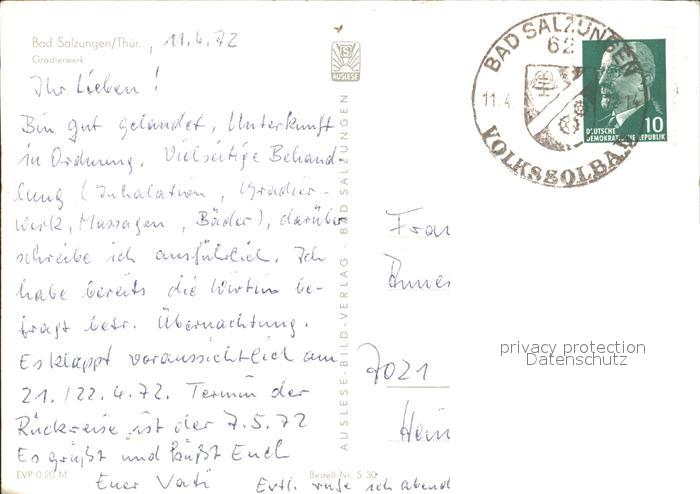 Bad Salzungen/Thür. , 11.4.72
Gradierwerk
Ihr Lieben!
Bin gut gelandet, Unterkunft
in Ordnung. Vielseitige Behand-
lung (Inhalation, Gradier-
werk, Massagen, Bäder), darüber
schreibe ich ausführlich. Ich
habe bereits die Wirtin be-
fragt betr. Übernachtung.
Es klappt voraussichtlich am
21./22.4.72. Termin der
Rückreise ist der 7.5.72
Es grüßt und küßt Euch
Euer Vati
Evtl. rufe ich abend
EVP 0,20 M
Bestell-Nr. S 30
AUSLESE
AUSLESE-BILD-VERLAG · BAD SALZUNGEN
BAD SALZUNGEN
62
11.4
VOLKSSOLBAD
DEUTSCHE
DEMOKRATISCHE REPUBLIK
10
Frau
7021
privacy protection
Datenschutz